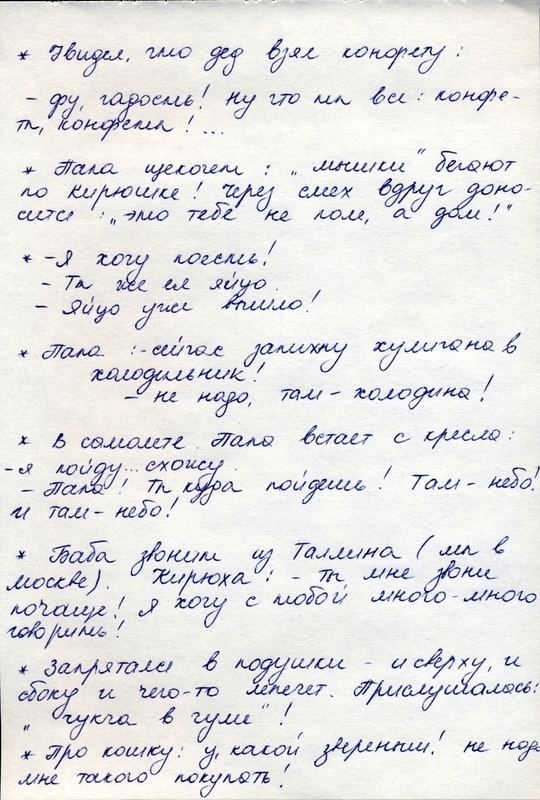 * Увидел, что дед взял конфету:
- фу, гадость! Ну что ты все: конфе-
ты, конфеты!...
* Папа щекочет: „мышки" бегают
по Кирюшке! Через смех вдруг доно-
сится: „это тебе не пол, а дом!"
* - Я хочу поесть!
- Ты же ел яйцо.
- Яйцо уже вышло!
* Папа: - сейчас запихну хулигана в
холодильник!
- не надо, там - холодина!
* В самолете Папа встает с кресла:
- я пойду... схожу.
- Папа! Ты куда пойдешь! Там - небо!
и там - небо!
* Баба звонит из Таллина (мы в
Москве). Кирюха: - Ты мне звони
почаще! Я хочу с тобой много-много
говорить!
* Запрятался в подушки - и сверху, и
сбоку и чего-то лепечет. Прислушалась:
„чукча в чуме"!
* Про кошку: у, какой звереныш! не надо
мне такого покупать!